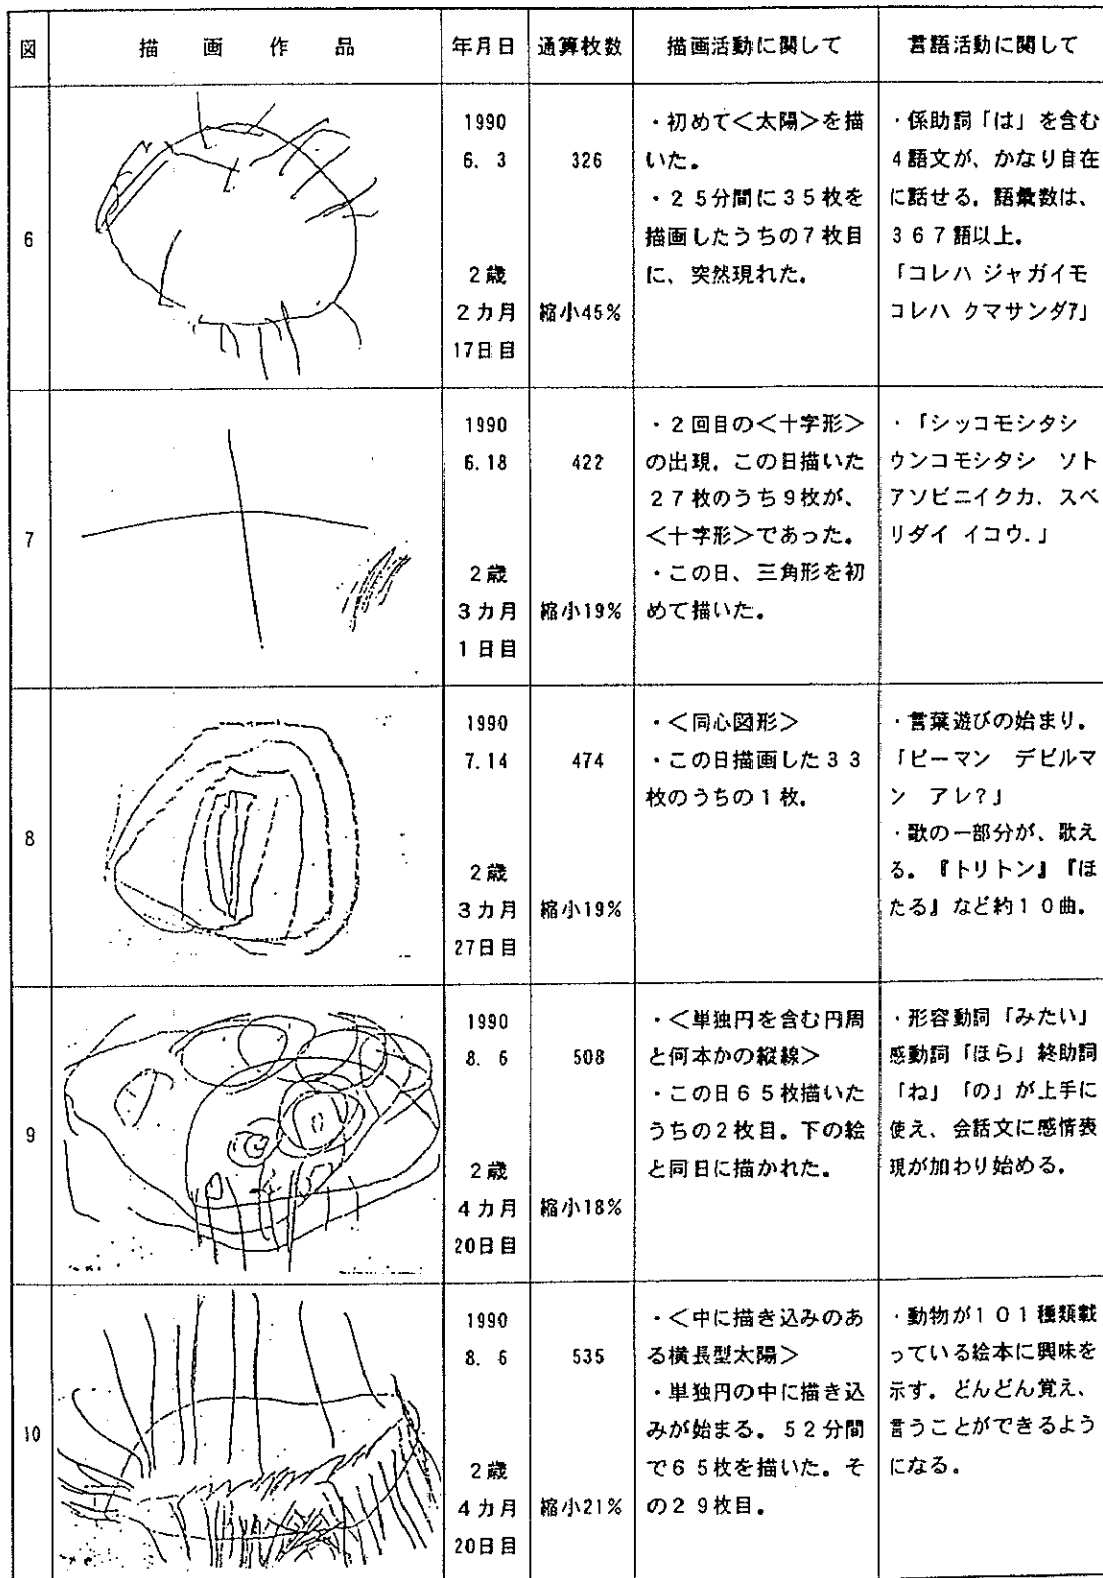 図 描画作品 年月日 通算枚数 描画活動に関して 言語活動に関して
6
1990
6. 3
2歳
2カ月
17日目
326
縮小45%
・初めて＜太陽＞を描
いた。
・２５分間に３５枚を
描画したうちの７枚目
に、突然現れた。
・係助詞「は」を含む
４語文が、かなり自在
に話せる。語彙数は、
３６７語以上。
「コレハ ジャガイモ
コレハ クマサンダ?」
7
1990
6.18
2歳
3カ月
1日目
422
縮小19%
・２回目の＜十字形＞
の出現。この日描いた
２７枚のうち９枚が、
＜十字形＞であった。
・この日、三角形を初
めて描いた。
・「シッコモシタシ
ウンコモシタシ ソト
アソビニイクカ. スベ
リダイ イコウ.」
8
1990
7.14
2歳
3カ月
27日目
474
縮小19%
・＜同心図形＞
・この日描画した３３
枚のうちの１枚。
・言葉遊びの始まり。
「ピーマン デビルマ
ン アレ?」
・歌の一部分が、歌え
る。『トリトン』『ほ
たる』など約１０曲。
9
1990
8. 6
2歳
4カ月
20日目
508
縮小18%
・＜単独円を含む円周
と何本かの縦線＞
・この日６５枚描いた
うちの２枚目。下の絵
と同日に描かれた。
・形容動詞「みたい」
感動詞「ほら」終助詞
「ね」「の」が上手に
使え、会話文に感情表
現が加わり始める。
10
1990
8. 6
2歳
4カ月
20日目
535
縮小21%
・＜中に描き込みのあ
る横長型太陽＞
・単独円の中に描き込
みが始まる。５２分間
で６５枚を描いた。そ
の２９枚目。
・動物が１０１種類載
っている絵本に興味を
示す。どんどん覚え、
言うことができるよう
になる。